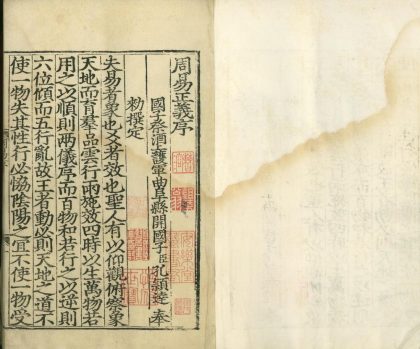 周易正義序
國子祭酒上護軍曲阜縣開國子臣孔穎達奉
勑撰定
夫易者象也爻者效也聖人有以仰觀俯察象
天地而育羣品雲行雨施效四時以生萬物若
用之以順則兩儀序而百物和若行之以逆則
六位傾而五行亂故王者動必則天地之道不
使一物失其性行必協陰陽之宜不使一物受